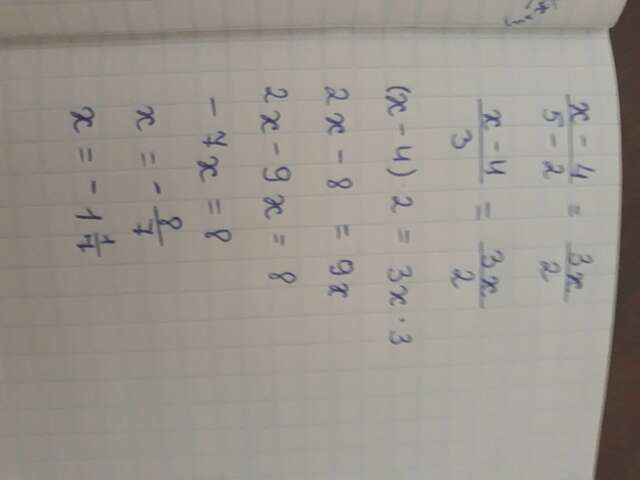 x-4/5-2 = 3x/2
x-4/3 = 3x/2
(x-4)·2 = 3x·3
2x-8 = 9x
2x-9x = 8
-7x = 8
x = -8/7
x = -1 1/7